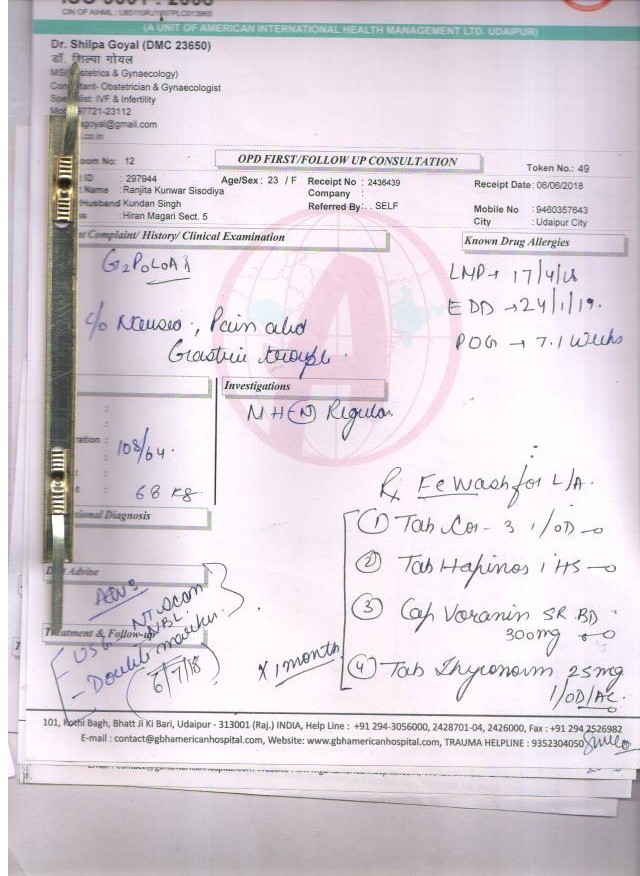 ISO 9001 : 2008
(A UNIT OF AMERICAN INTERNATIONAL HEALTH MANAGEMENT LTD. UDAIPUR)
Dr. Shilpa Goyal (DMC 23650)
डॉ. शिल्पा गोयल
MS stetrics & Gynaecology)
Con tant- Obstetrician & Gynaecologist
Spe list: IVF & Infertility
97721-23112
agoyal@gmail.com
.co.in
oom No: 12
OPD FIRST/FOLLOW UP CONSULTATION
Token No.: 49
ID : 297944
Age/Sex : 23 / F
Receipt No : 2436439
Receipt Date: 06/06/2018
Name : Ranjita Kunwar Sisodiya
Company :
/Husband Kundan Singh
Referred By: . . SELF
Mobile No : 9460357643
s : Hiran Magari Sect. 5
City : Udaipur City
t Complaint/ History/ Clinical Examination
Known Drug Allergies
G2P0L0A1
LMP → 17/4/18
EDD → 24/1/19.
POG → 7.1 Weeks
c/o Nausea, Pain abd
Gastric trouple.
Investigations
MH (N) Regular.
108/64.
68 kg.
sional Diagnosis
Advise
Adv:
USG NT scan
NBL.
- Double marker.
6/7/18
Treatment & Follow-up
Rx Fe Wash for L/A.
(1) Tab Cor-3 1/OD
(2) Tab Hapinos 1 HS
(3) Cap Voranin SR BD
300mg
(4) Tab Thyronorm 25mg
1/OD/AC
x 1 month
101, Kothi Bagh, Bhatt Ji Ki Bari, Udaipur - 313001 (Raj.) INDIA, Help Line : +91 294-3056000, 2428701-04, 2426000, Fax : +91 294 2526982
E-mail : contact@gbhamericanhospital.com, Website: www.gbhamericanhospital.com, TRAUMA HELPLINE : 9352304050